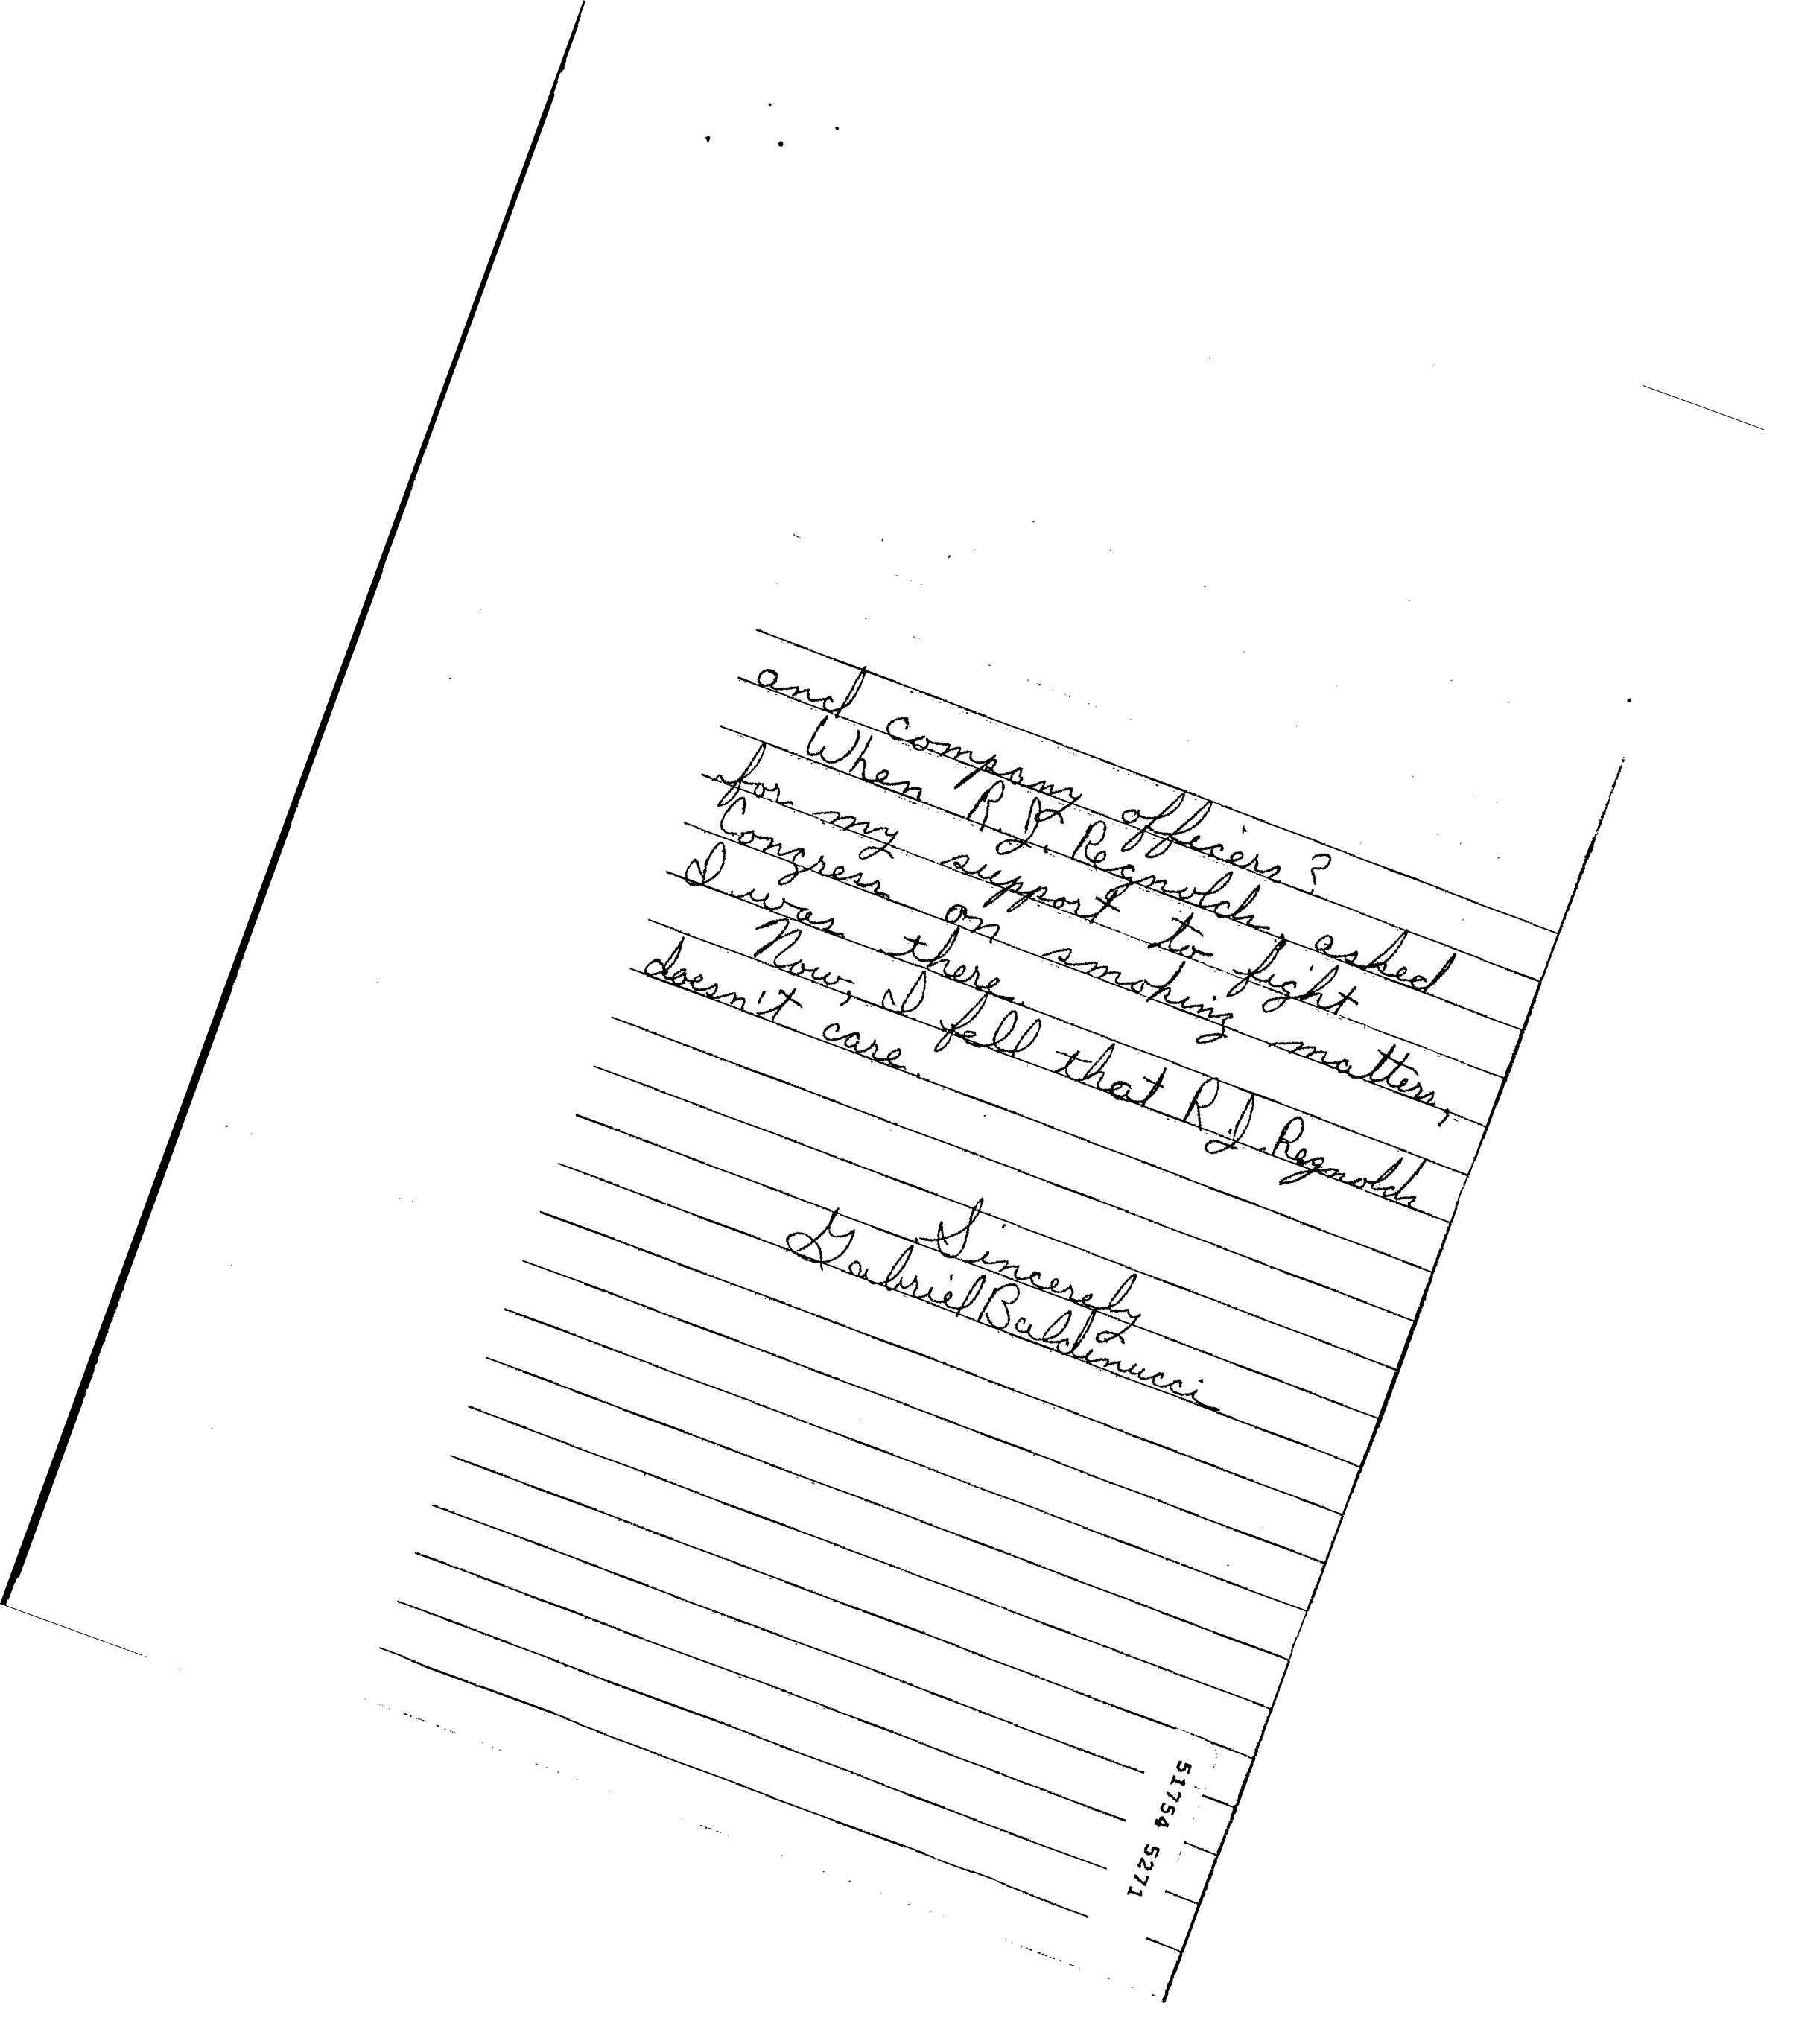 and company officers?
When R.J. Regnolds, asked
for my support to fight
Congress on smoking matters,
I was there.
Now, I fell that R.J. Regnolds
doesn't care.
Sincerely
Gabriel Baldinucci
51754 5271